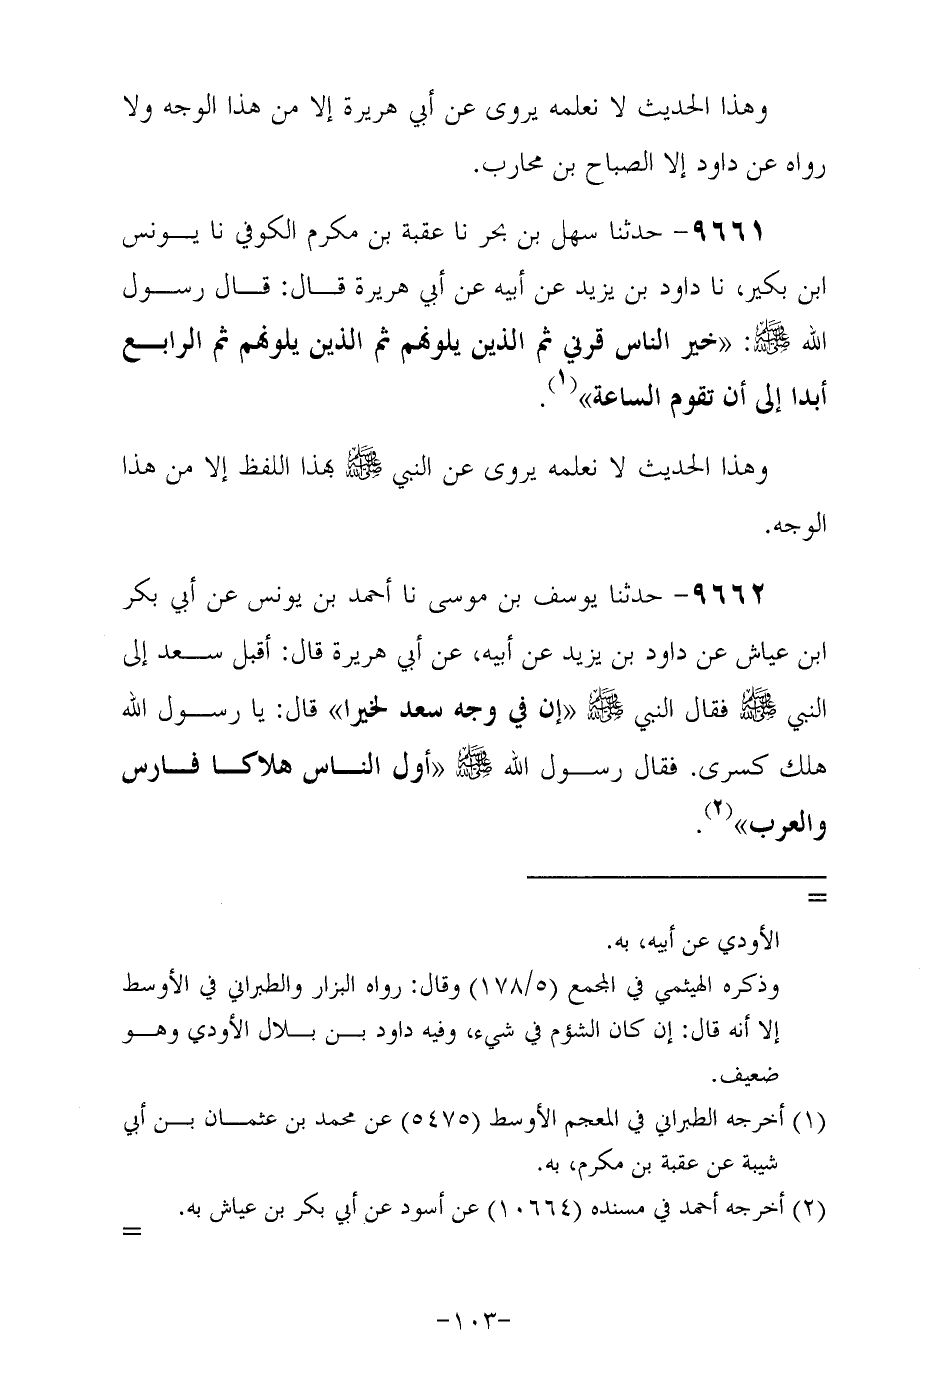 وهذا الحديث لا نعلمه يروى عن أبي هريرة إلا من هذا الوجه ولا
رواه عن داود إلا الصباح بن محارب.
٩٦٦١- حدثنا سهل بن بحر نا عقبة بن مكرم الكوفي نا يـــونس
ابن بكير، نا داود بن يزيد عن أبيه عن أبي هريرة قـــال: قـــال رســـول
الله ﷺ: «خير الناس قرني ثم الذين يلونهم ثم الذين يلونهم ثم الرابـــع
أبدا إلى أن تقوم الساعة»(١).
وهذا الحديث لا نعلمه يروى عن النبي ﷺ بهذا اللفظ إلا من هذا
الوجه.
٩٦٦٢- حدثنا يوسف بن موسى نا أحمد بن يونس عن أبي بكر
ابن عياش عن داود بن يزيد عن أبيه، عن أبي هريرة قال: أقبل ســـعد إلى
النبي ﷺ فقال النبي ﷺ «إن في وجه سعد لخيرا» قال: يا رســـول الله
هلك كسرى. فقال رســـول الله ﷺ «أول النـــاس هلاكـــا فـــارس
والعرب»(٢).
=
الأودي عن أبيه، به.
وذكره الهيثمي في المجمع (١٧٨/٥) وقال: رواه البزار والطبراني في الأوسط
إلا أنه قال: إن كان الشؤم في شيء، وفيه داود بـــن بـــلال الأودي وهـــو
ضعيف.
(١) أخرجه الطبراني في المعجم الأوسط (٥٤٧٥) عن محمد بن عثمـــان بـــن أبي
شيبة عن عقبة بن مكرم، به.
(٢) أخرجه أحمد في مسنده (١٠٦٦٤) عن أسود عن أبي بكر بن عياش به.
=
-١٠٣-